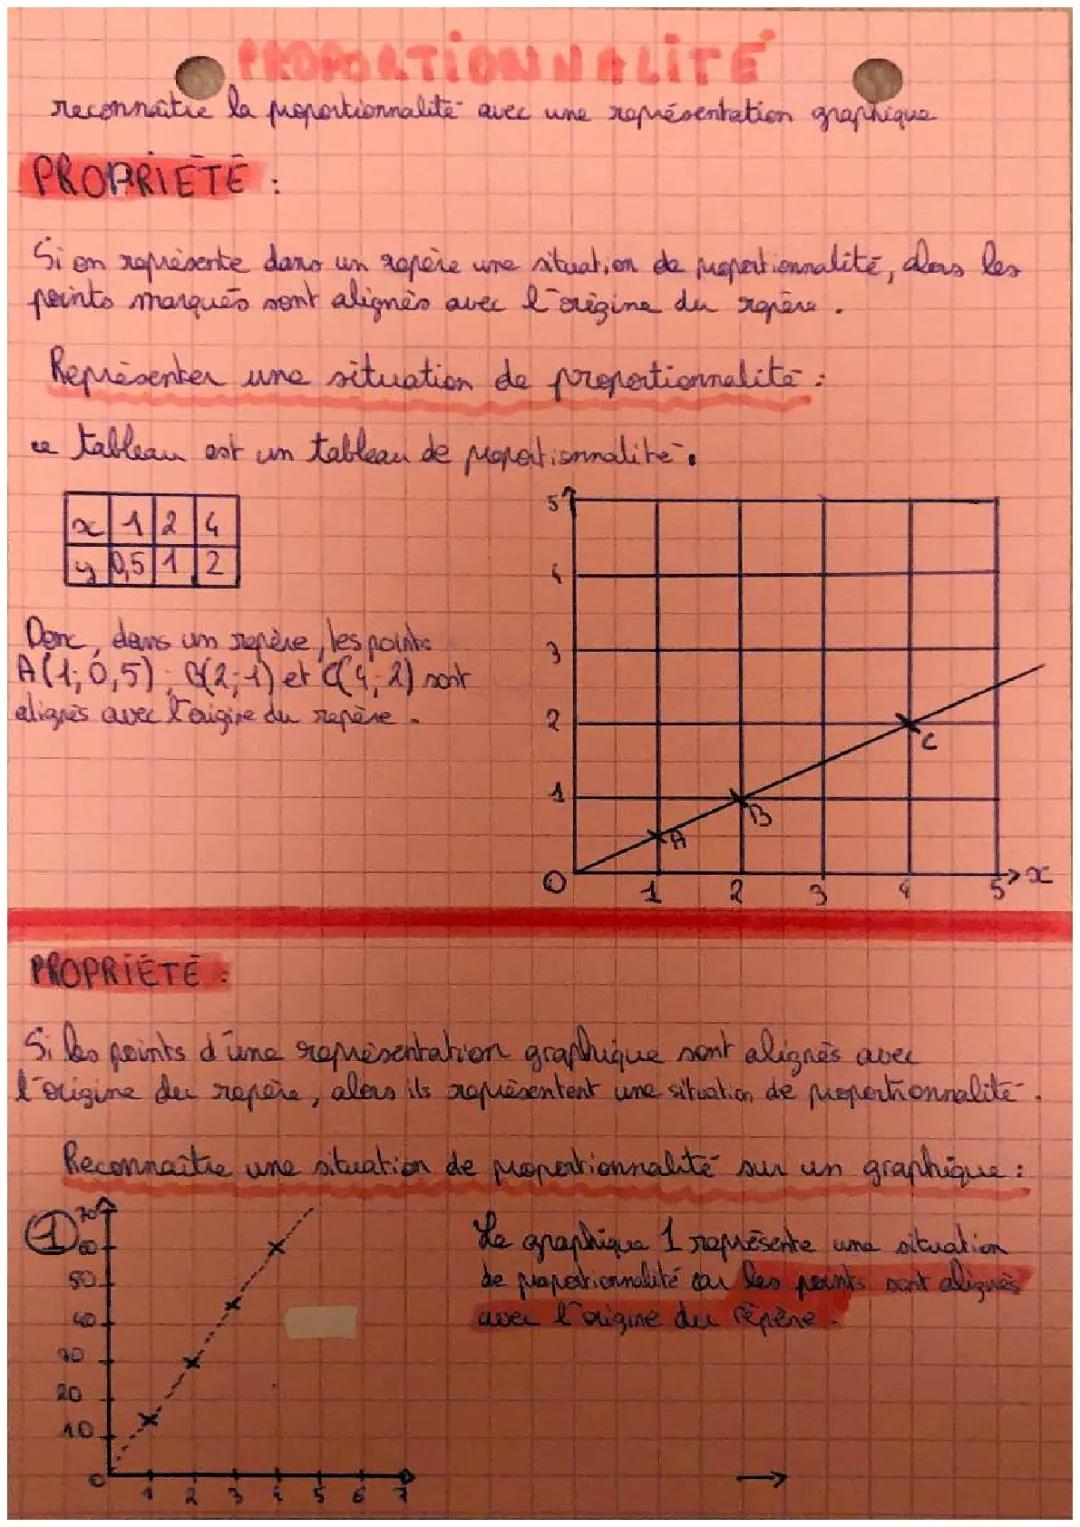 PROPORTiONNALiTÉ
reconnaître la proportionnalité avec une représentation graphique
PROPRiÉTÉ :
Si on représente dans un repère une situation de proportionnalité, alors les
points marqués sont alignés avec l'origine du repère.
Représenter une situation de proportionnalité :
ce tableau est un tableau de proportionnalité.
x 1 2 4
y 0,5 1 2
Donc, dans un repère, les points
A(1; 0,5) ; (2; 1) et C(4; 2) sont
alignés avec l'origine du repère.
5
4
3
2
1
O
1 2 3 4 5 x
A
B
C
PROPRiÉTÉ :
Si les points d'une représentation graphique sont alignés avec
l'origine du repère, alors ils représentent une situation de proportionnalité.
Reconnaître une situation de proportionnalité sur un graphique :
1
70
60
50
40
30
20
10
0
1 2 3 4 5 6 7
Le graphique 1 représente une situation
de proportionnalité car les points sont alignés
avec l'origine du répère.